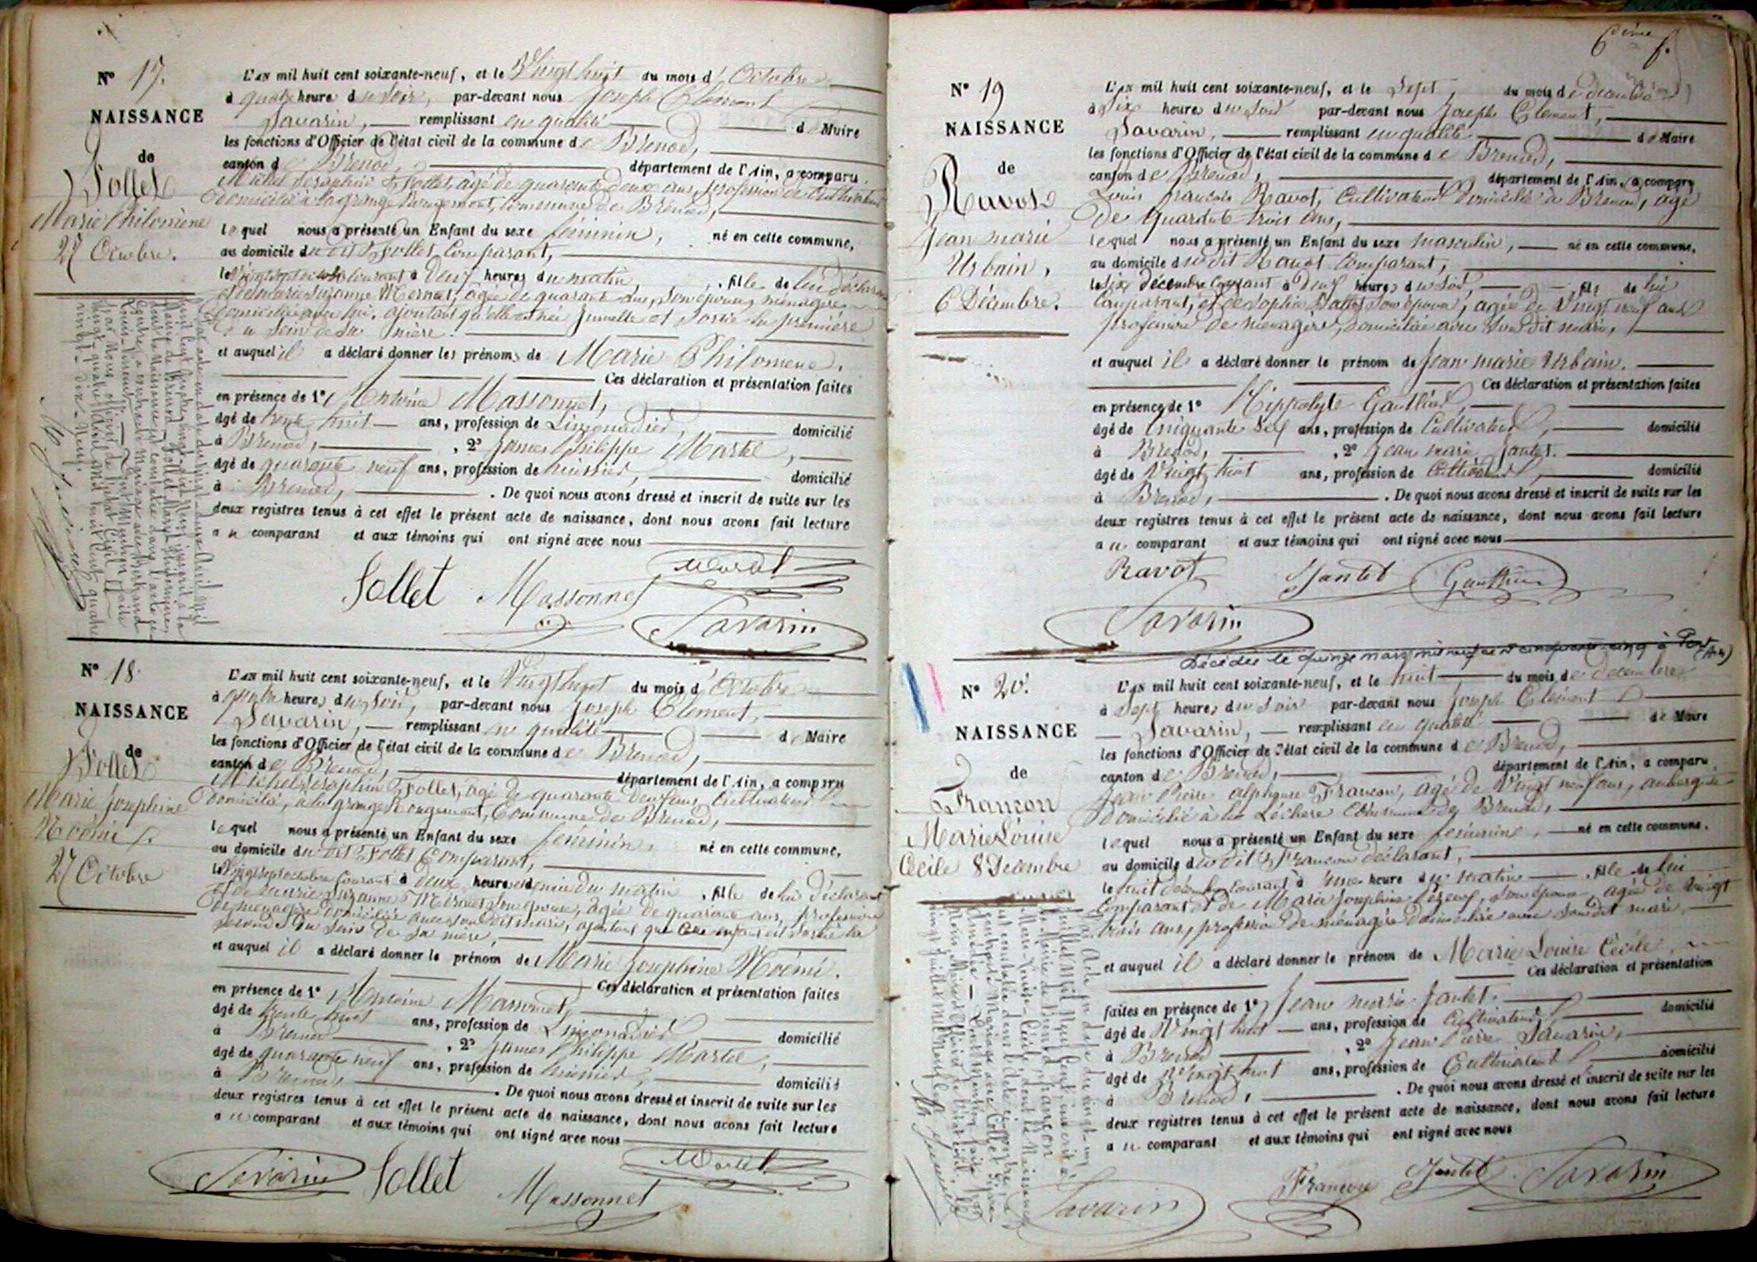 N° 17.
NAISSANCE
de
Follet
Marie Philomène
27 Octobre.
L'AN mil huit cent soixante-neuf, et le Vingt huit du mois d'Octobre
à quatre heure du soir, par-devant nous Joseph Clément
Savarin, remplissant en qualité de Maire
les fonctions d'Officier de l'état civil de la commune de Brenod,
canton de Brenod, département de l'Ain, a comparu
Michel Séraphin Follet, âgé de quarante deux ans, profession de Cultivateur
domicilié à la grange Rougemont, Commune de Brénod,
lequel nous a présenté un Enfant du sexe féminin, né en cette commune,
au domicile du dit Follet comparant,
le Vingt sept courant à deux heures du matin, fille de lui déclarant
et de Marie Suzanne Mermet, âgée de quarante ans, son épouse, ménagère
domiciliée avec lui, ajoutant qu'elle est née jumelle et sortie la première
du sein de sa mère.
et auquel il a déclaré donner les prénoms de Marie Philomène.
Ces déclaration et présentation faites
en présence de 1° Antoine Massonnet,
âgé de trente huit ans, profession de Limonadier, domicilié
à Brenod, 2° James Philippe Martel,
âgé de quarante neuf ans, profession de huissier, domicilié
à Brenod, . De quoi nous avons dressé et inscrit de suite sur les
deux registres tenus à cet effet le présent acte de naissance, dont nous avons fait lecture
au comparant et aux témoins qui ont signé avec nous
Follet Massonnet Martel
Savarin
N° 18.
NAISSANCE
de
Follet
Marie Joséphine
Noémi
27 Octobre
L'AN mil huit cent soixante-neuf, et le Vingt huit du mois d'Octobre
à quatre heure, du soir, par-devant nous Joseph Clément,
Savarin, remplissant en qualité de Maire
les fonctions d'Officier de l'état civil de la commune de Brenod,
canton de Brenod, département de l'Ain, a comparu
Michel Séraphin Follet, âgé de quarante deux ans, Cultivateur
domicilié, à la grange Rougemont, Commune de Brenod,
lequel nous a présenté un Enfant du sexe féminin, né en cette commune,
au domicile du dit Follet Comparant,
le Vingt sept octobre Courant à deux heures et demie du matin, fille de lui déclarant
et de Marie Suzanne Mermet son épouse, âgée de quarante ans, profession
de ménagère domiciliée avec son dit mari, ajoutant que cet enfant est sortie la
seconde du sein de sa mère,
et auquel il a déclaré donner le prénom de Marie Joséphine Noémi.
Ces déclaration et présentation faites
en présence de 1° Antoine Massonnet,
âgé de trente huit ans, profession de Limonadier domicilié
à Brenod, 2° James Philippe Martel,
âgé de quarante neuf ans, profession de huissier, domicilié
à Brenod, . De quoi nous avons dressé et inscrit de suite sur les
deux registres tenus à cet effet le présent acte de naissance, dont nous avons fait lecture
au comparant et aux témoins qui ont signé avec nous
Savarin Follet Massonnet Martel
6ème f.
N° 19
NAISSANCE
de
Ravot
Jean marie
Urbain,
6 Décembre.
L'AN mil huit cent soixante-neuf, et le Sept, du mois de décembre
à Six heure du soir par-devant nous Joseph Clément,
Savarin, remplissant en qualité de Maire
les fonctions d'Officier de l'état civil de la commune de Brenod,
canton de Brenod, département de l'Ain, a comparu
Louis françois Ravot, Cultivateur domicilié à Brenod, âgé
de quarante trois ans,
lequel nous a présenté un Enfant du sexe masculin, né en cette commune,
au domicile du dit Ravot comparant,
le Six décembre Courant à neuf heures du soir, fils de lui
Comparant, et de Sophie son épouse, âgée de Vingt neuf ans
profession de ménagère, domiciliée avec son dit mari,
et auquel il a déclaré donner le prénom de Jean marie Urbain.
Ces déclaration et présentation faites
en présence de 1° Hippolyte Gauthier,
âgé de Cinquante Six ans, profession de Cultivateur, domicilié
à Brenod, 2° Jean marie Jantet.
âgé de Vingt huit ans, profession de Cultivateur, domicilié
à Brenod, . De quoi nous avons dressé et inscrit de suite sur les
deux registres tenus à cet effet le présent acte de naissance, dont nous avons fait lecture
au comparant et aux témoins qui ont signé avec nous
Ravot Jantet Gauthier
Savarin
Décédée le quinze mars mil neuf cent cinquante cinq à Pont (Ain)
N° 20.
NAISSANCE
de
Françon
Marie Louise
Cécile 8 Décembre
L'AN mil huit cent soixante-neuf, et le huit du mois de décembre
à Sept heure, du soir par-devant nous Joseph Clément
Savarin, remplissant en qualité de Maire
les fonctions d'Officier de l'état civil de la commune de Brenod,
canton de Brenod, département de l'Ain, a comparu
Jean Pierre alphonse Françon, âgé de Vingt neuf ans, aubergiste
domicilié à la Léchère Commune de Brenod,
lequel nous a présenté un Enfant du sexe féminin, né en cette commune,
au domicile du dit Françon déclarant,
le huit décembre courant à une heure du matin fille de lui
comparant et de Marie Joséphine son épouse âgée de vingt
trois ans, profession de ménagère domiciliée avec son dit mari,
et auquel il a déclaré donner le prénom de Marie Louise Cécile.
Ces déclaration et présentation
faites en présence de 1° Jean marie Jantet.
âgé de Vingt huit ans, profession de Cultivateur domicilié
à Brenod 2° Jean Pierre Savarin,
âgé de Vingt huit ans, profession de Cultivateur domicilié
à Brenod, . De quoi nous avons dressé et inscrit de suite sur les
deux registres tenus à cet effet le présent acte de naissance, dont nous avons fait lecture
au comparant et aux témoins qui ont signé avec nous
Savarin Françon Jantet Savarin